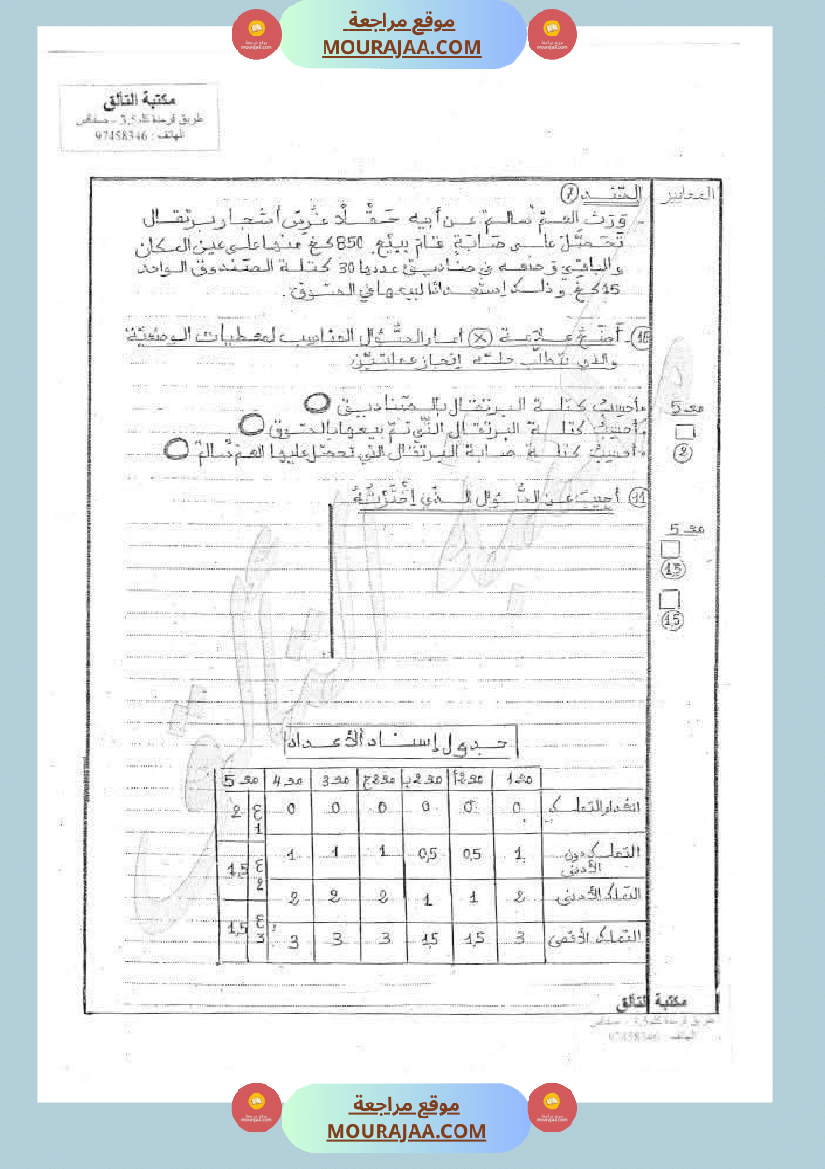 موقع مراجعة
MOURAJAA.COM
مكتبة التألق
طريق قرمدة كلم 3,5 - صفاقس
الهاتف : 97458346
المعايير
السند 7
- وَرِثَ العمّ سالم عن أبيه حَقْلًا غُرِسَ أشجار برتقال
تَحَصَّلَ على صَابَةٍ قامَ ببيْعِ 850 كغ منها على عين المكان
والباقي وضعه في صناديق عددها 30 كتلة الصّندوق الواحد
15 كغ وذلك استعدادًا لبيعها في السّوق.
10 - أَضَعُ علامة (X) أمام السُّؤال المناسب لمعطيات الوضعيّة
والذي يتطلّب حلّه إنجاز عمليّتين:
• أحسِبُ كتلة البرتقال بالصّناديق
مع 5
• أحسِبُ كتلة البرتقال الّتي تمّ بيعها بالسّوق
• أحسِبُ كتلة صابة البرتقال التي تحصّل عليها العم سالم
2
11 أجيبُ عن السُّؤال الذي اخْتَرْتُهُ
مع 5
1,5
1,5
جدول إسناد الأعداد
مع 1 مع 2أ مع 2ب مع 2ج مع 3 مع 4 مع 5
انعدام التملك 0 0 0 0 0 0 ع 1 2
التملك دون الأدنى 1 0,5 0,5 1 1 1 ع 2 1,5
التملك الأدنى 2 1 1 2 2 2
التملك الأقصى 3 1,5 1,5 3 3 3 ع 3 1,5
مكتبة التألق
طريق قرمدة كلم 3,5 - صفاقس
الهاتف : 97458346
موقع مراجعة
MOURAJAA.COM